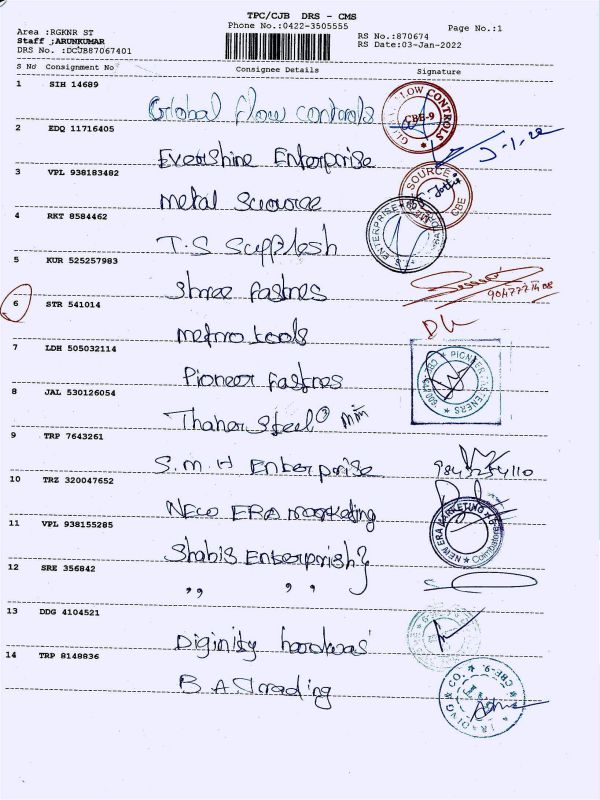 TPC/CJB DRS - CMS
Phone No.:0422-3505555
Page No.:1
Area :RGKNR ST
Staff :ARUNKUMAR
DRS No. :DCJB87067401
RS No.:870674
RS Date:03-Jan-2022
S No Consignment No Consignee Details Signature
1 SIH 14689
Global flow controls
FLOW CONTROLS CBE-9
2 EDQ 11716405
Evershine Enterprise
3 VPL 938183482
metal Source
SOURCE CBE
4 RKT 8584462
T.S Supplesh
T.S. ENTERPRISE
5 KUR 525257983
Shree fastnes
6 STR 541014
metro tools
7 LDH 505032114
Pioneer fastnes
PIONEER FASTENERS
8 JAL 530126054
Thaner Steel
9 TRP 7643261
S.M.H Enterprise
10 TRZ 320047652
New ERA marketing
NEW ERA MARKETING Coimbatore
11 VPL 938155285
Shabis Enterprish }
12 SRE 356842
,, ,,
13 DDG 4104521
Diginity hardwas
14 TRP 8148836
B.A Trading
TRADING CO. CBE-9